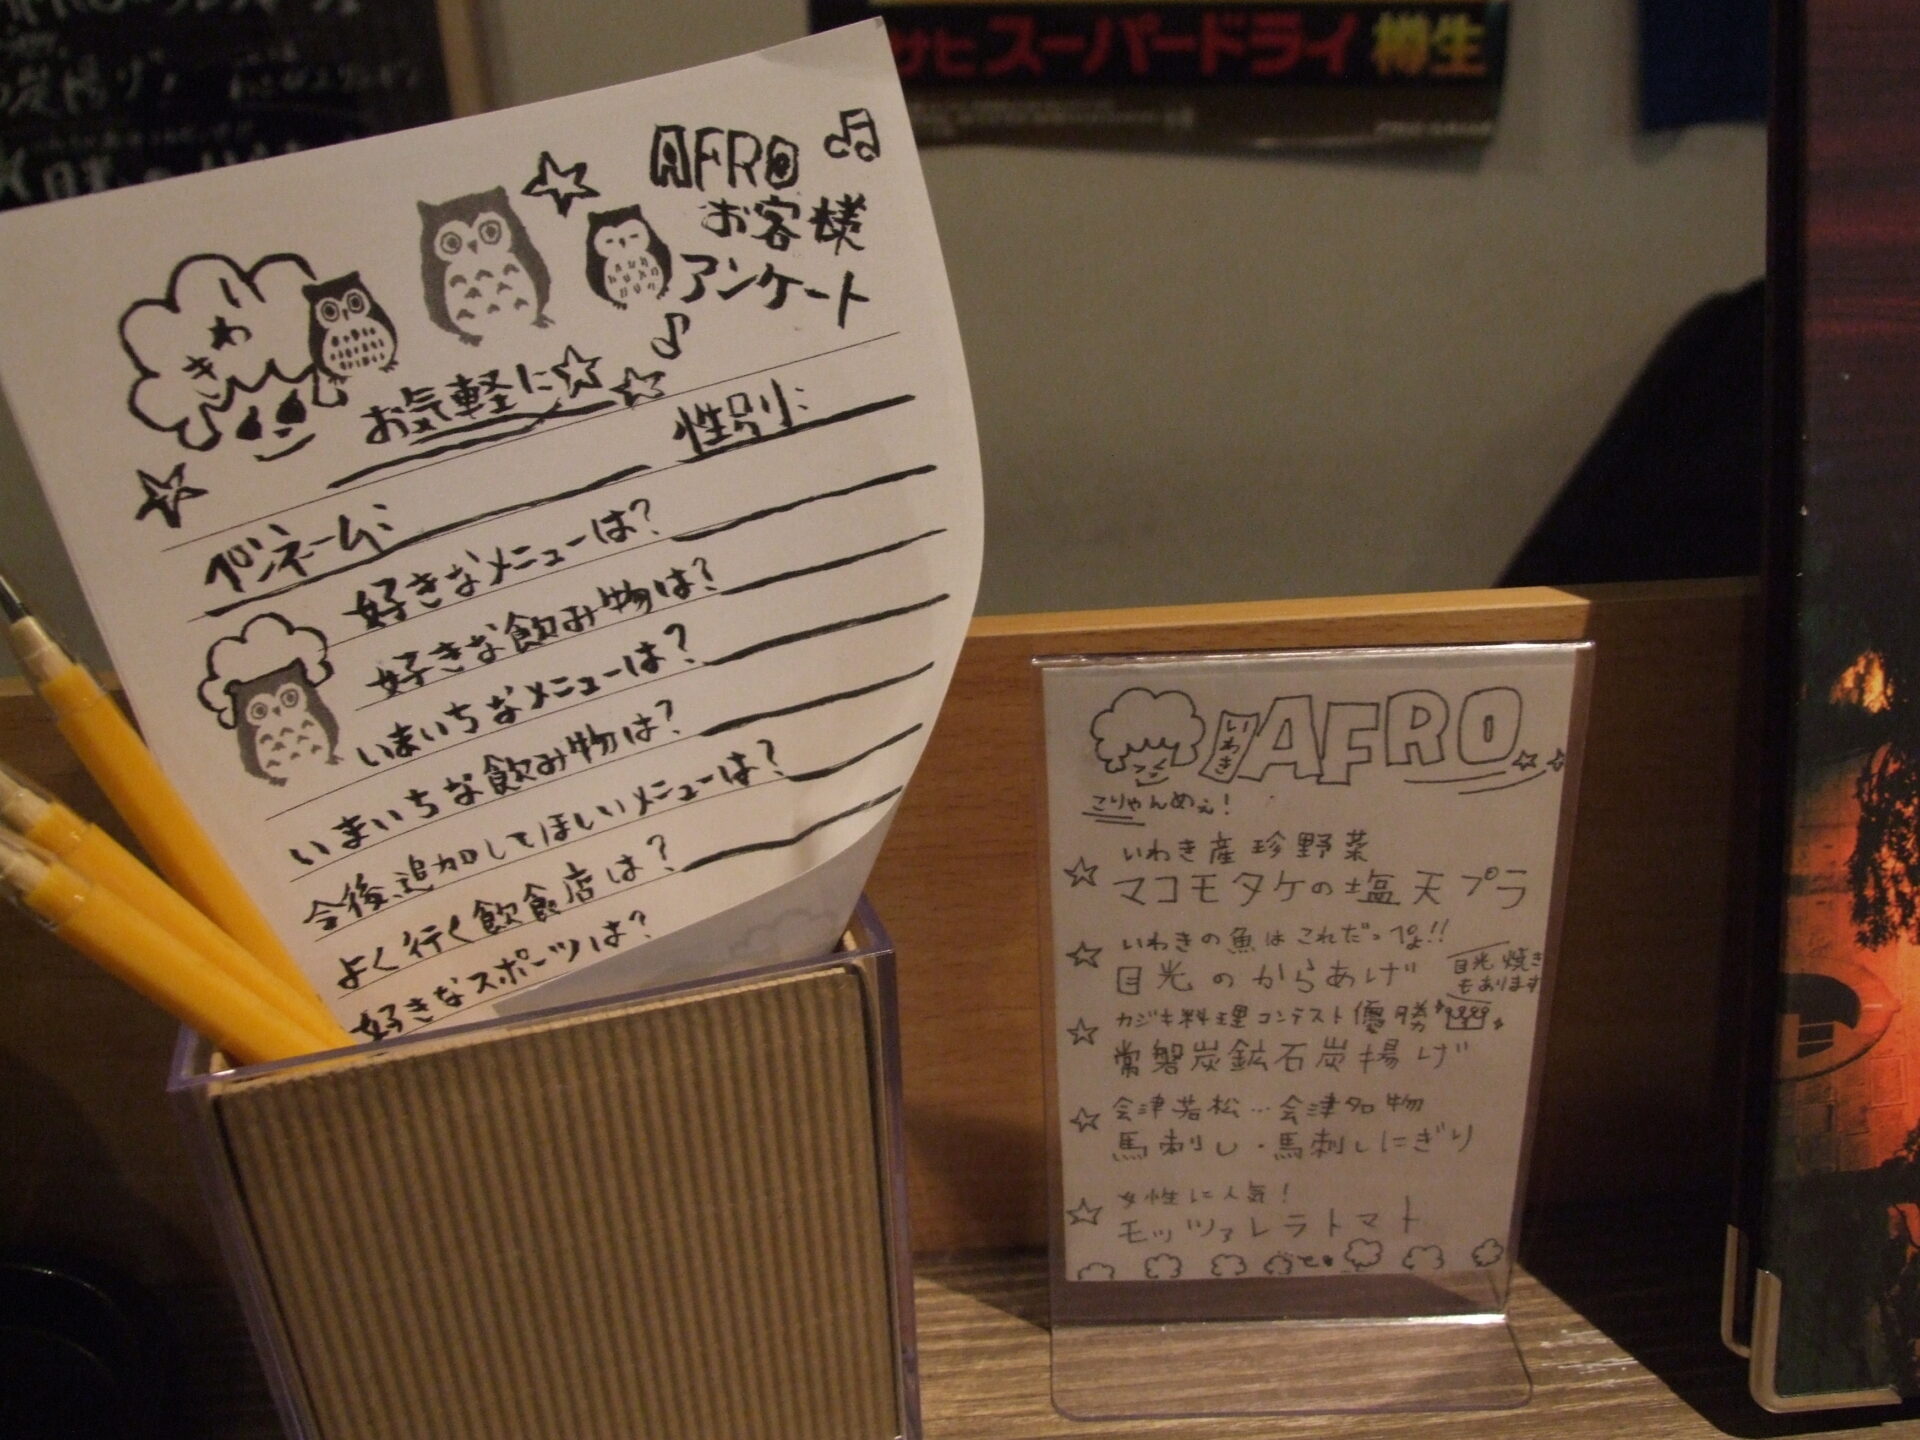 サヒスーパードライ 樽生
AFRO
お客様
アンケート
いわき
お気軽に
性別:
ペンネーム:
好きなメニューは?
好きな飲み物は?
いまいちなメニューは?
いまいちな飲み物は?
今後、追加してほしいメニューは?
よく行く飲食店は?
好きなスポーツは?
いわき AFRO
こりゃんめぇ!
いわき産珍野菜
マコモタケの塩天プラ
いわきの魚はこれだっぺよ!!
目光のからあげ
目光焼き
もあります
カジキ料理コンテスト優勝
常磐炭鉱石炭揚げ
会津若松…会津名物
馬刺し・馬刺しにぎり
女性に人気!
モッツァレラトマト